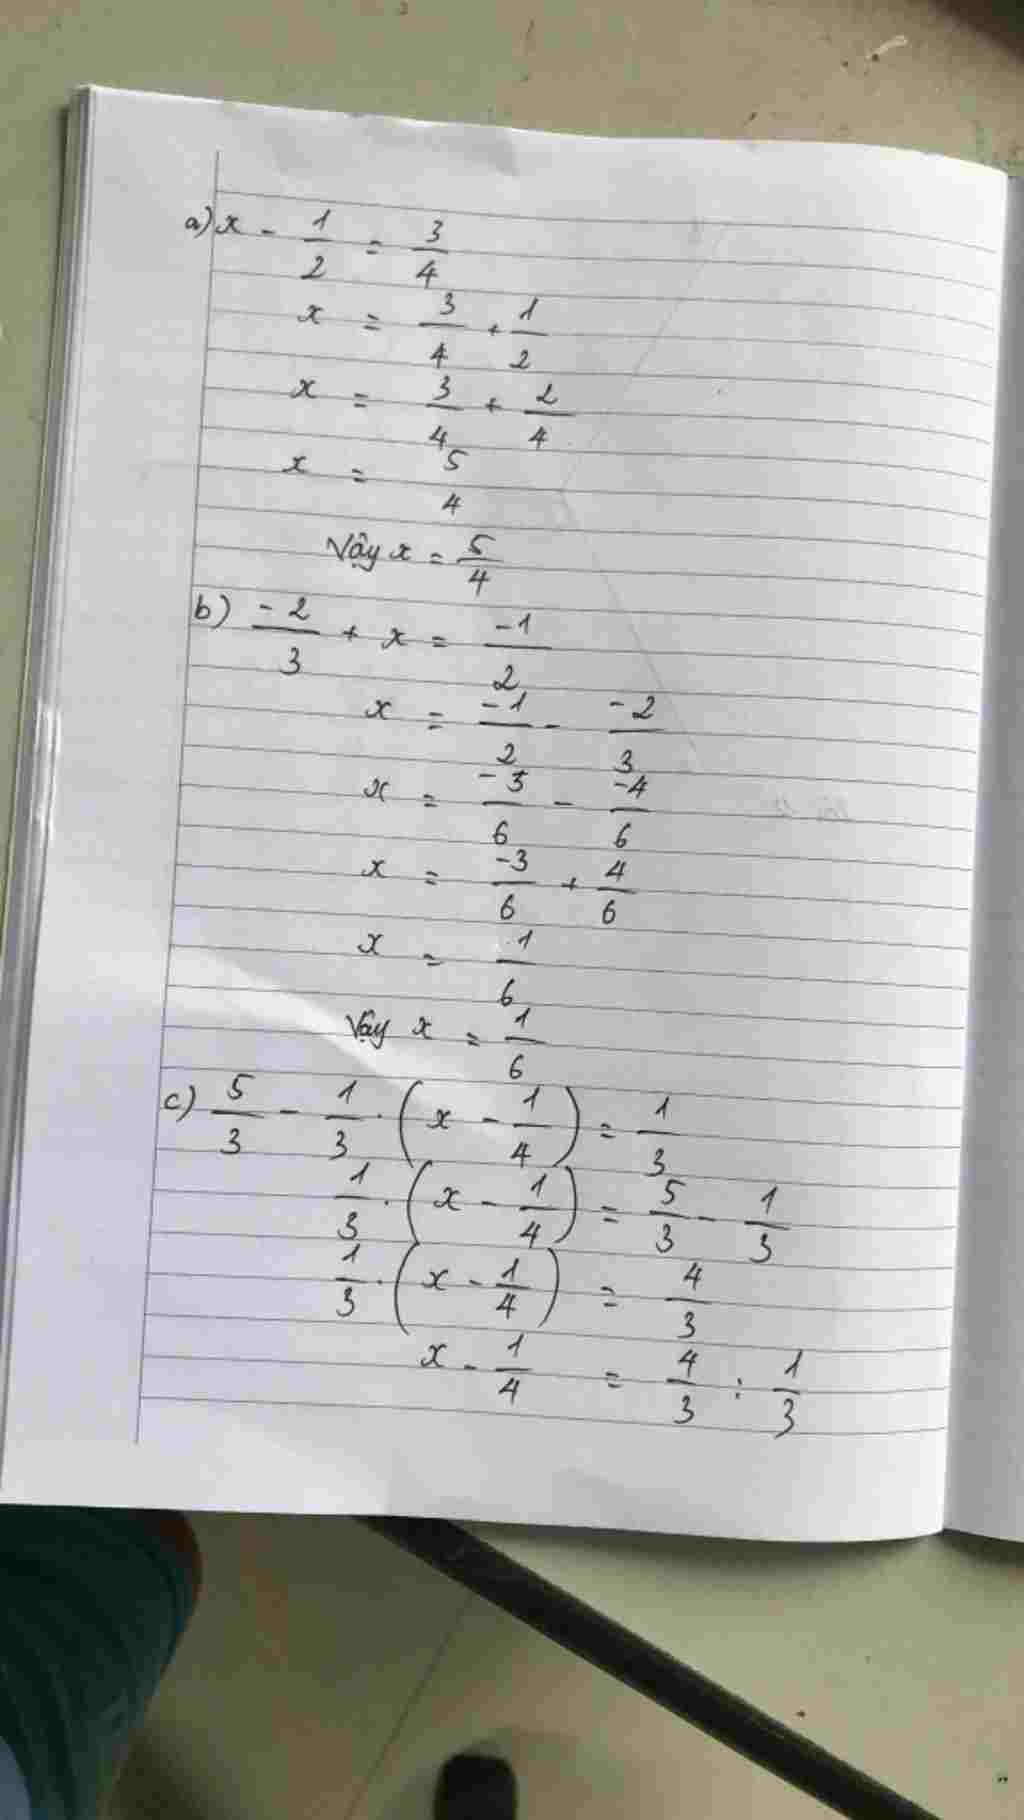 a) x - 1/2 = 3/4
x = 3/4 + 1/2
x = 3/4 + 2/4
x = 5/4
Vậy x = 5/4
b) -2/3 + x = -1/2
x = -1/2 - -2/3
x = -3/6 - -4/6
x = -3/6 + 4/6
x = 1/6
Vậy x = 1/6
c) 5/3 - 1/3 . (x - 1/4) = 1/3
1/3 . (x - 1/4) = 5/3 - 1/3
1/3 . (x - 1/4) = 4/3
x - 1/4 = 4/3 : 1/3